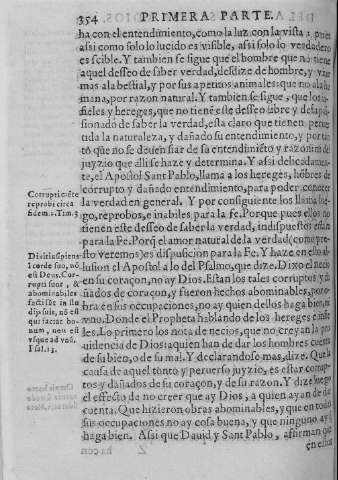 354 PRIMERA PARTE.
ha con el entendimiento, como la luz con la vista: pues
assi como solo lo lucido es visible, assi solo lo verdadero
es scible. Y tambien se sigue que el hombre que no tiene
aquel desseo de saber verdad, desdize de hombre, y va
mas a la bestial, y por sus apetitos animales: que no a la hu
mana, por razon natural. Y tambien se sigue, que los in
fieles y hereges, que no tienẽ este desseo libre y desapa
sionado de saber la verdad, esta claro que tienen peruer
tida la naturaleza, y dañado su entendimiento, y por tan
to que no se deuen fiar de su entendimiẽto y razon ni del
juyzio que alli se haze y determina. Y assi delicadamen-
te, el Apostol Sant Pablo, llama a los hereges, hõbres de
corrupto y dañado entendimiento, para poder conocer
la verdad en general. Y por consiguiente los llama lue-
go, reprobos, e inabiles para la fe. Porque pues ellos no
tienen este desseo de saber la verdad, indispuestos estan
para la Fe. Porq̃ el amor natural de la verdad (como pre-
sto veremos) es dispusicion para la Fe. Y haze en ello al-
lusion el Apostol a lo del Psalmo, que dize. Dixo el necio
en su coraçon, no ay Dios. Estan los tales corruptos y da
ñados de coraçon, y fueron hechos abominables, por o-
bra en sus occupaciones, no ay quien dellos haga bien, ni
vno. Donde el Propheta hablando de los hereges e infie-
les. Lo primero los nota de necios, que no creyan la pro
uidencia de Dios: a quien han de dar los hombres cuenta
de su bien, o de su mal. Y declarandose mas, dize. Que la
causa de aquel tonto y peruerso juyzio, es estar corrup-
tos y dañados de su coraçon, y de su razon. Y dize luego
el effecto de no creer que ay Dios, a quien ayan de dar
cuenta. Que hizieron obras abominables, y que en todas
sus occupaciones no ay cosa buena, y que ninguno ay q̃
haga bien. Assi que Dauid y Sant Pablo, affirman que
en estos
Corrupti mẽte
reprobi circa
fidem 2. Tim. 3
Dixit insipiens
in corde suo, nõ
est Deus. Cor-
rupti sunt, &
abominabiles
facti sũt in stu
dijs suis, nõ est
qui faciat bo-
num, non est
vsque ad vnũ.
Psal. 13.